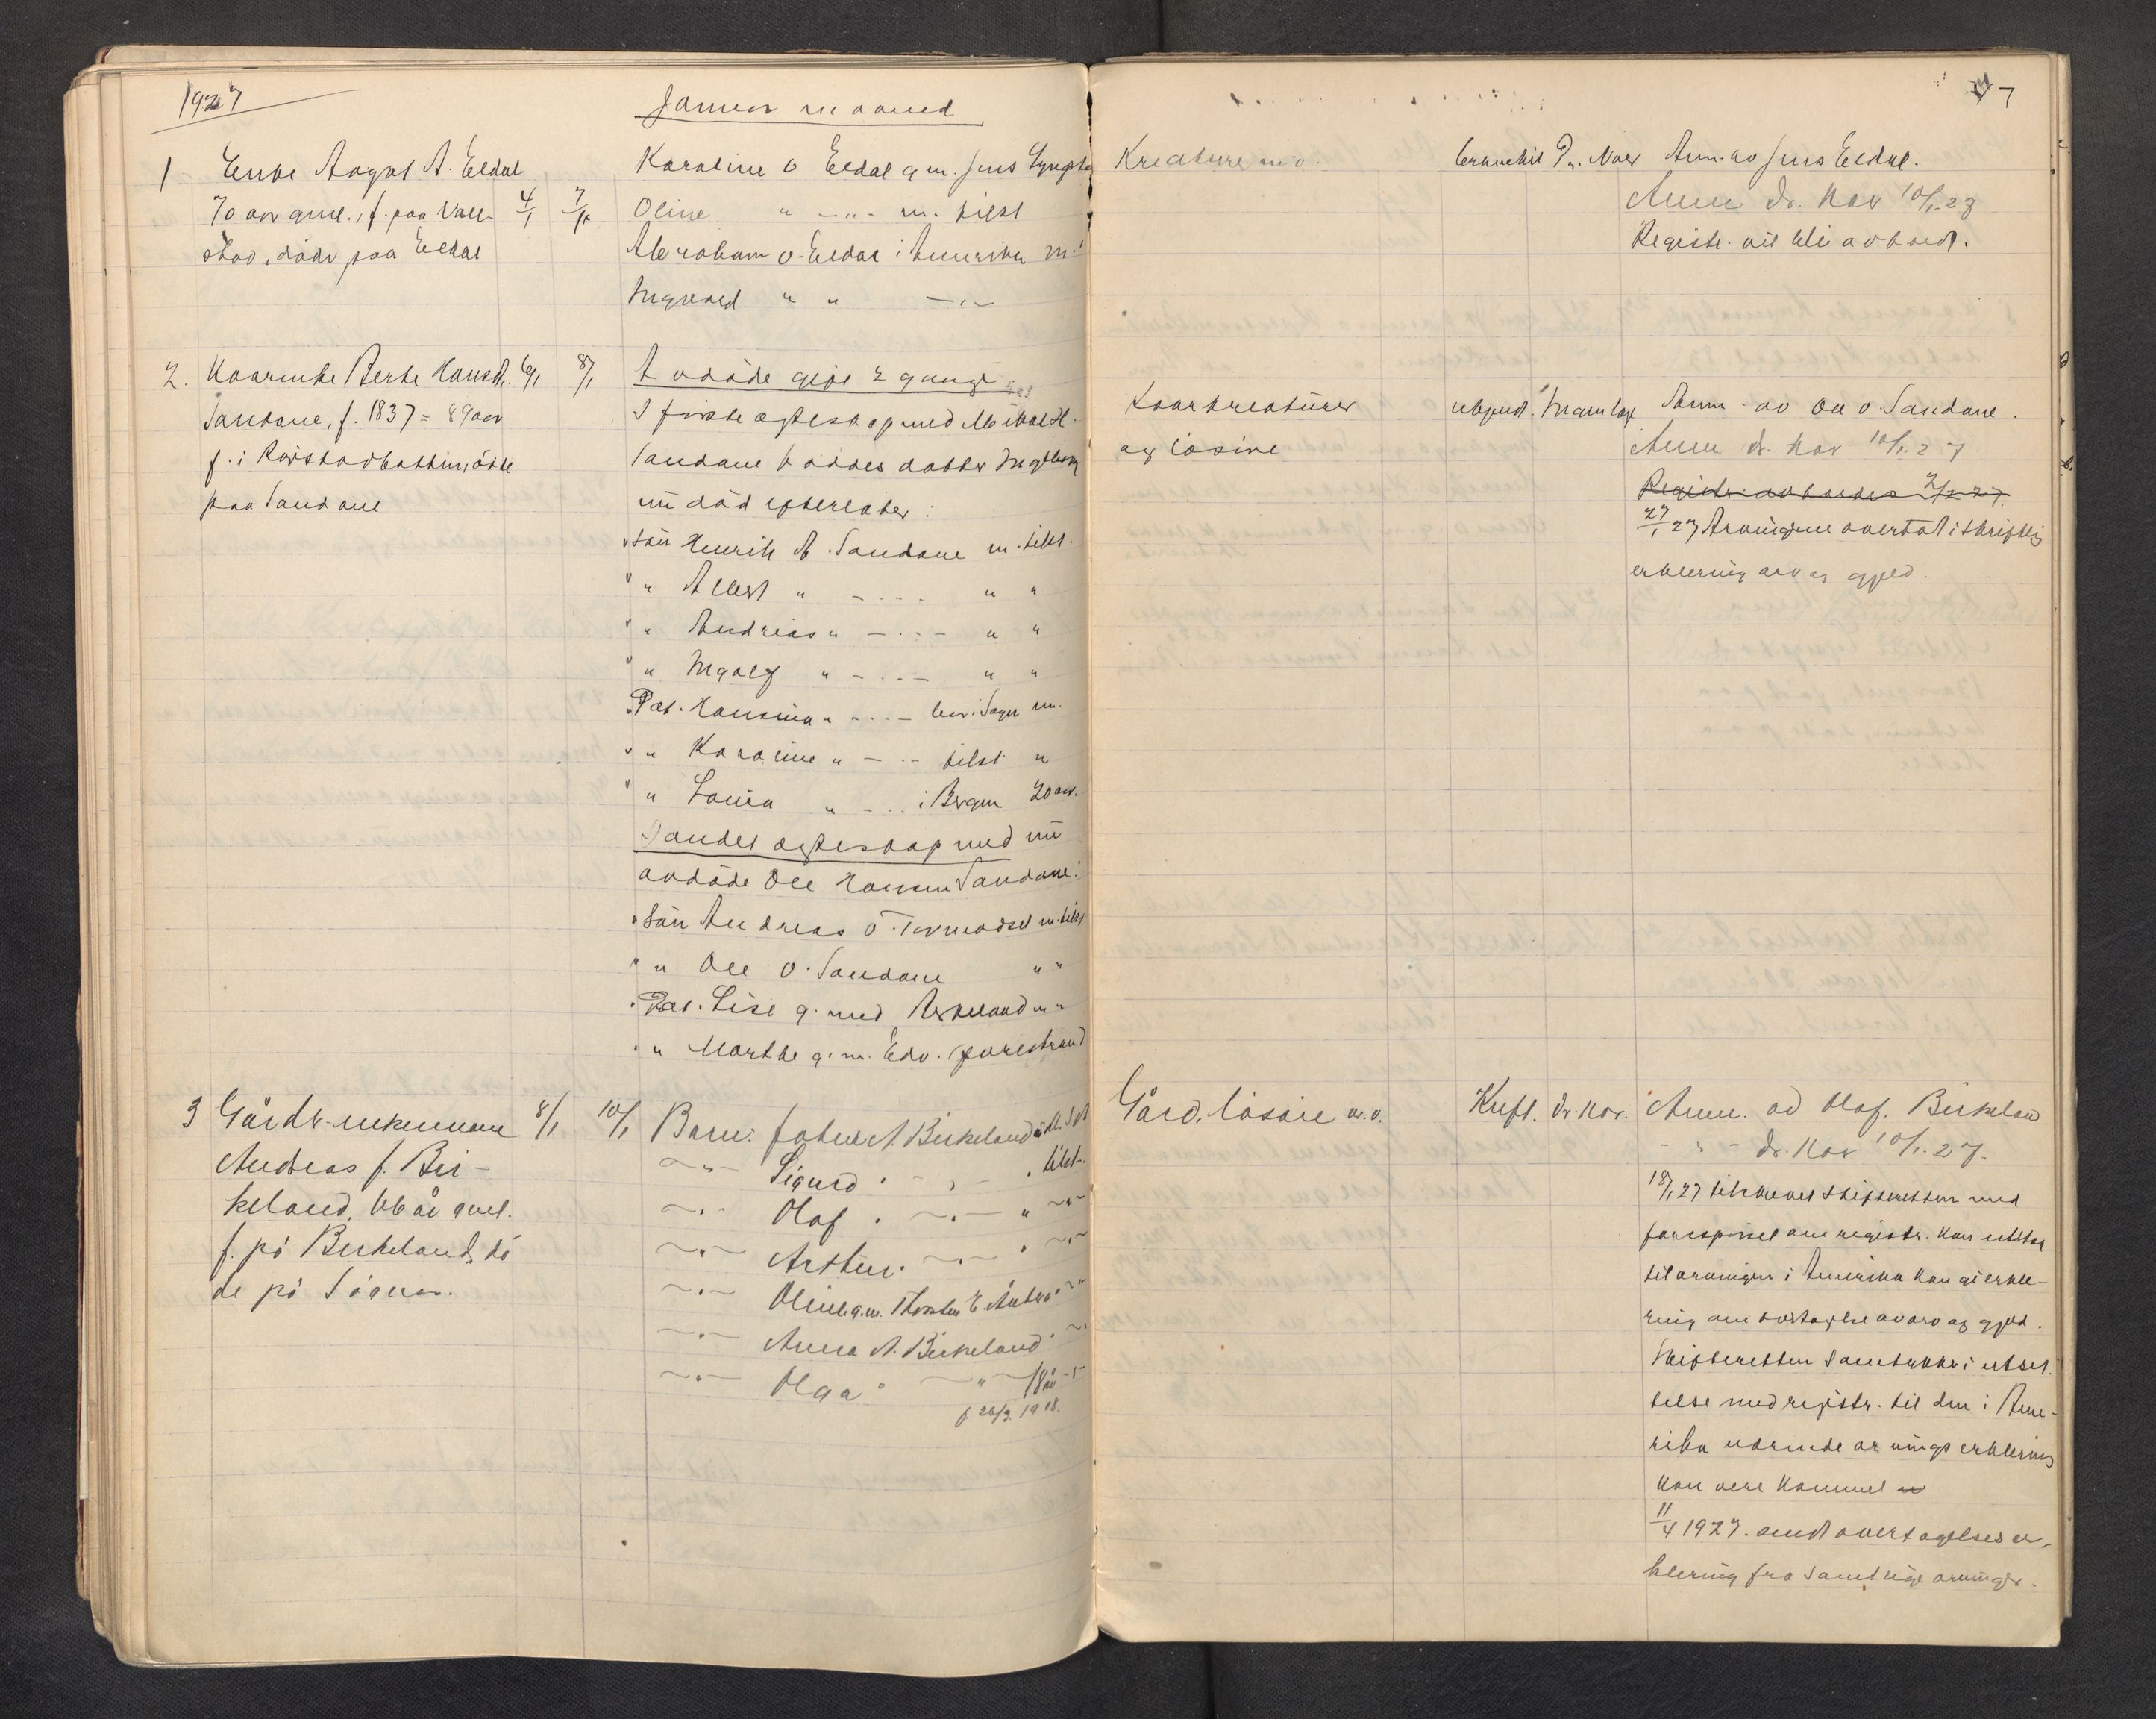 1927
Januar maaned
7
1 Enke Aagot A. Eldal
70 aar gml., f. paa Vall-
stad, döde paa Eldal
4/1
7/1
Karoline O Eldal g m. Jens
Oline " -"- m. tilst
Abraham O. Eldal i Amerika m.
Ingvald " " -"-
Kreature m.v.
Dr. Nova Anm. av Jens Eldal.
Anm Dr. Nova 10/1.27
Registr. vil bli avholdt.
2. Kaarenke Berte Hansdt.
Sandane, f. 1837 = 89 aar
f. i döde
paa Sandane
6/1
8/1
Avdöde gift 2 gange
I förste ægteskap med Mikal H.
Sandane föddes datter Ingeborg
nu död efterlater:
Sön Henrik A. Sandane m. tilst.
" Albert " -"- " "
" Andreas " -"- " "
" Ingolf " -"- " "
Dat. Hansina " -"- bor i Sogn m.
" Karoline " -"- tilst "
" Lovisa " -"- i Bergen 20 aar.
I andet ægteskap med nu
avdöde Ole Hansen Sandane:
Sön Andreas O. Tormodset m. tilst
" Ole O. Sandane " "
Dat. Lise g. med Askeland " "
" Marthe g. m. Edv.
Kaarkreaturer
og lösöre
ubetyd. Ingen
Anm. av Ole O. Sandane.
Anm dr. Nova 10/1.27
Registr. avholdes 2/2 27
27/1 27 Arvingene overtat i skriftlig
erklering arv og gjeld.
3 Gårdb. enkemann
Andreas J. Bir-
keland, 66 år gml.
f. på Birkeland, dö
de på Sögnen.
8/1
10/1
Barn: Johan A. Birkeland
-"- Sigurd " -"- " tilst.
-"- Olaf " -"- " -"-
-"- Arthur " -"- " -"-
-"- Oline g.m. Thorsten E.
-"- Anna A. Birkeland " -"-
-"- Olga " -"- 18 år
f 26/3. 1918.
Gård, lösöre m.v.
Kuft. Dr. Nov.
Anm. av Olaf. Birkeland
- " - dr. Nov 10/1.27.
18/1 27 tilskrevet Skifteretten med
forespörsel om registr. kan utstaa
til arvingen i Amerika kan gi erkle-
ring om overtagelse av arv og gjeld.
Skifteretten samtykker i utset-
telse med registr. til den i Ame-
rika værende arvings erklering
kan være kommet
11/4 1927. sendt overtagelseser-
klering fra samtlige arvinger.